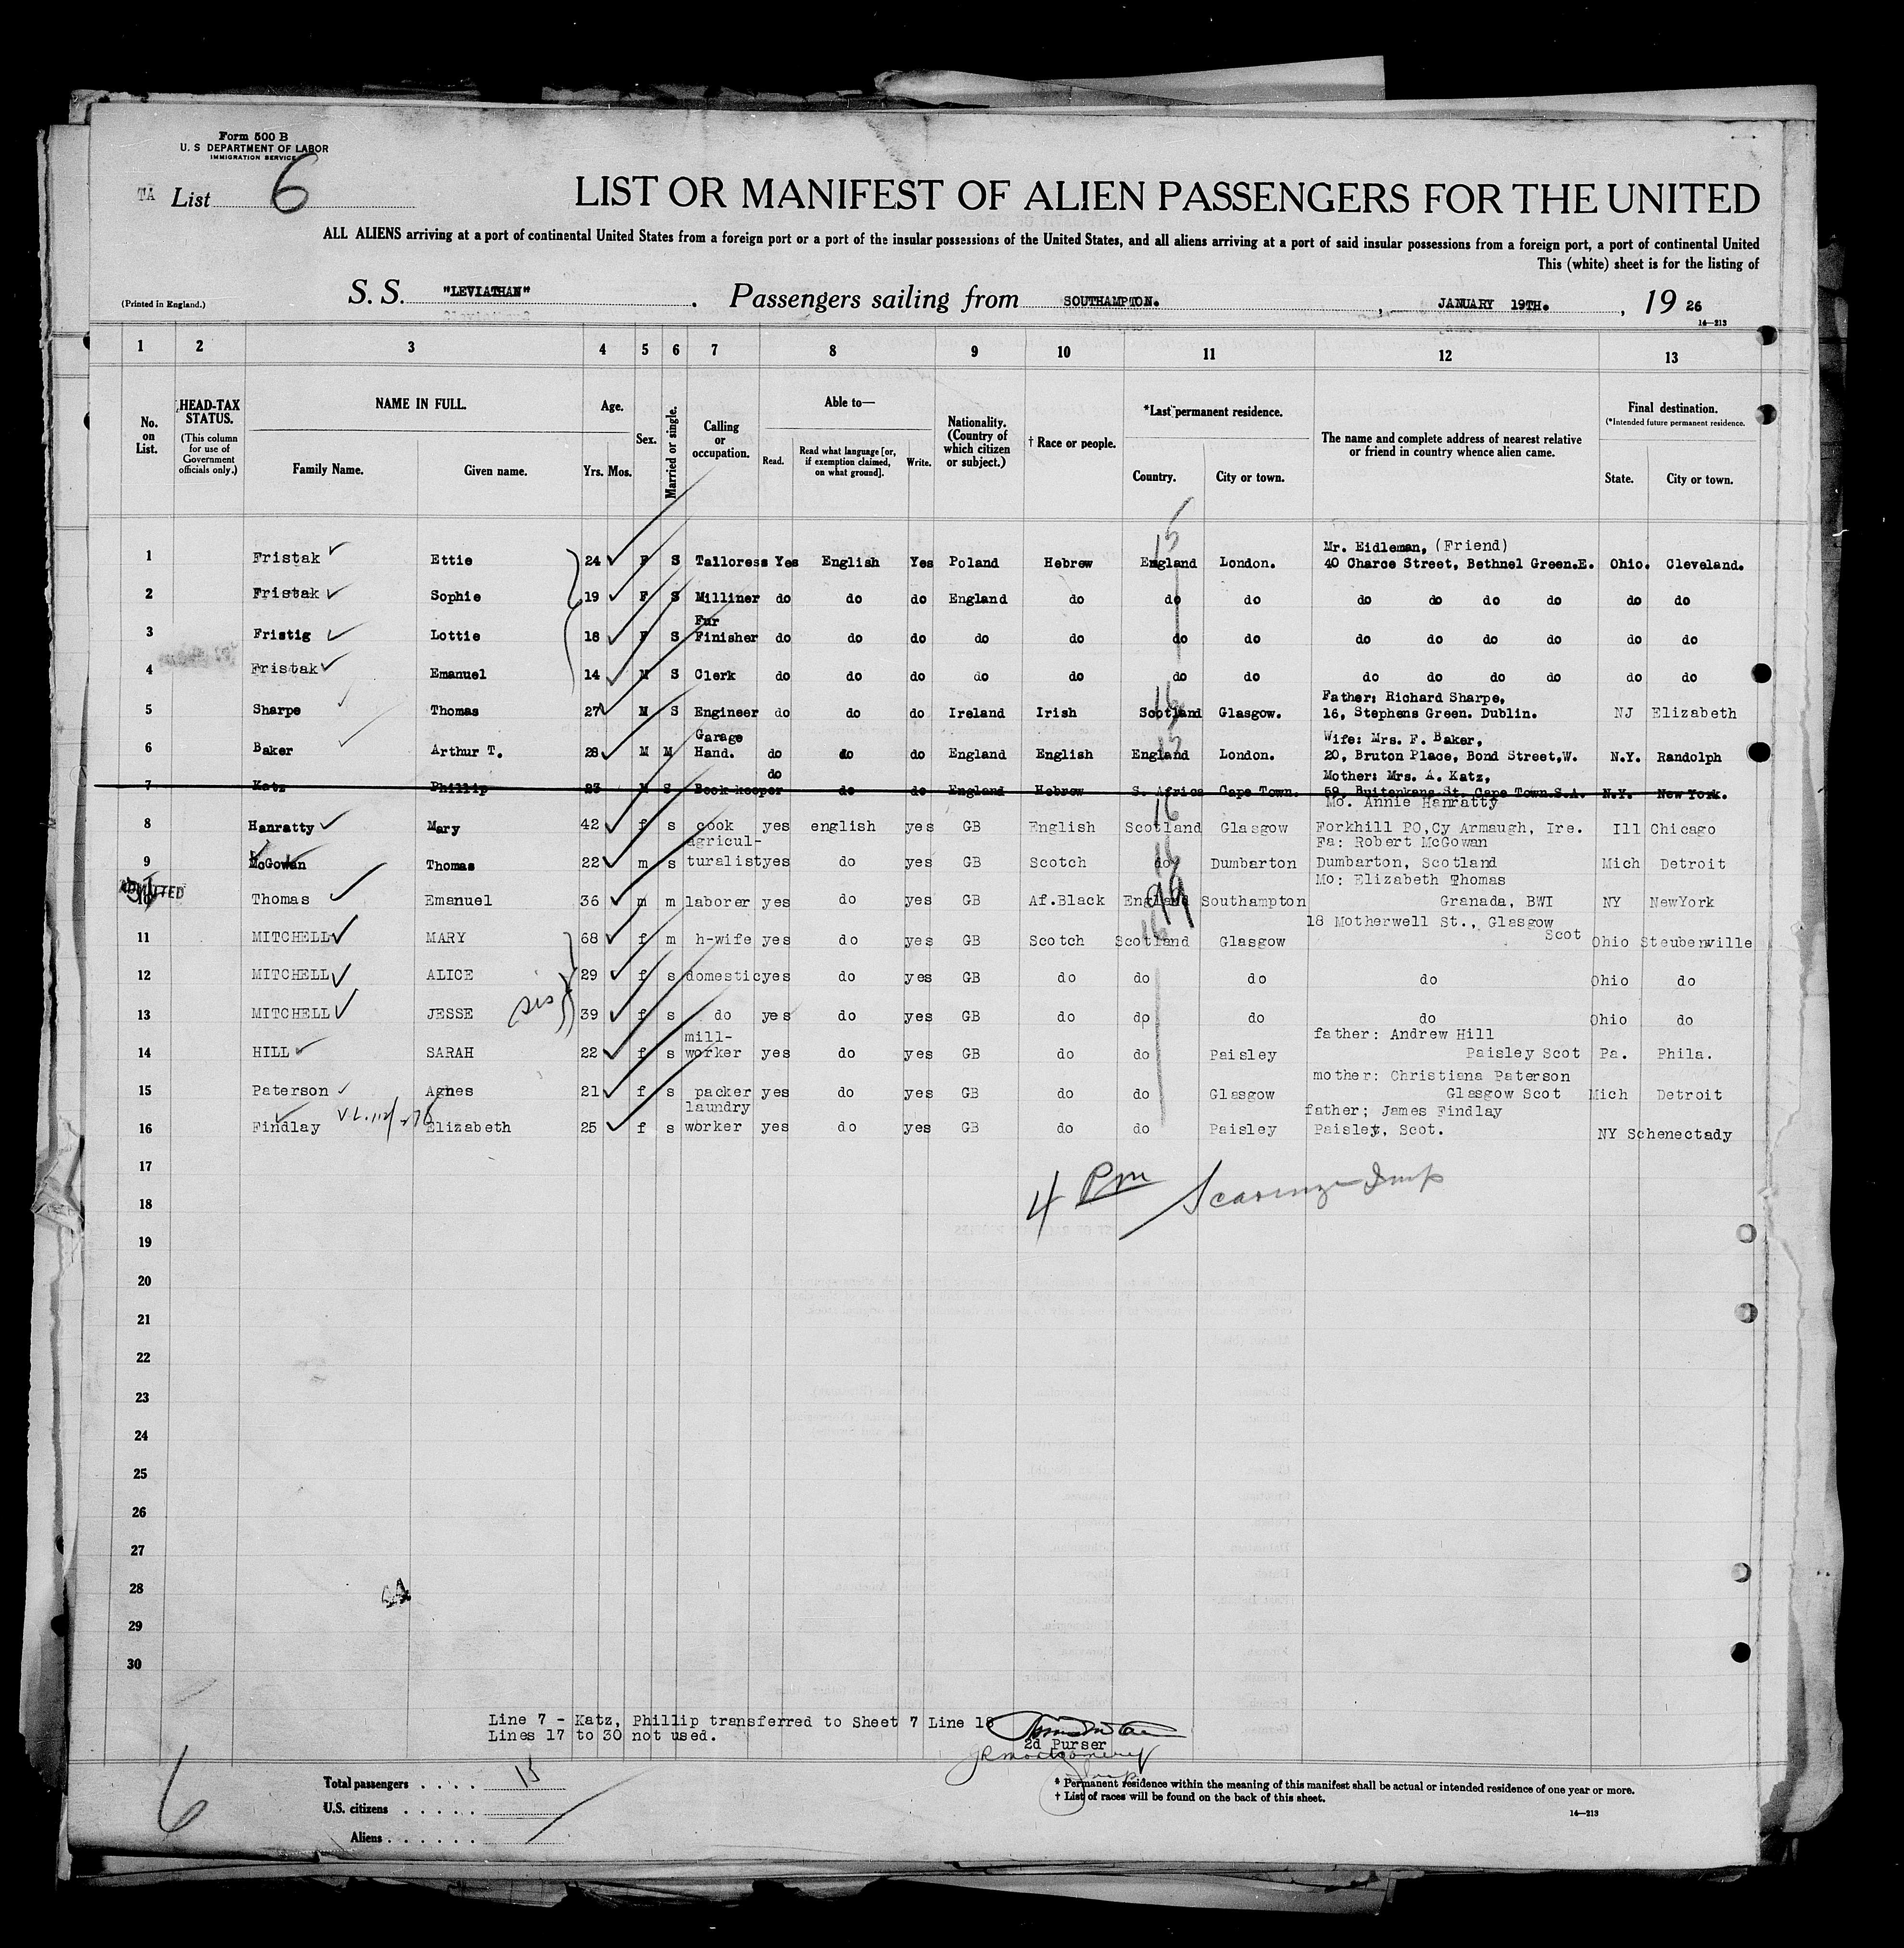 Form 500 B
U. S DEPARTMENT OF LABOR
IMMIGRATION SERVICE
TA List 6
LIST OR MANIFEST OF ALIEN PASSENGERS FOR THE UNITED
ALL ALIENS arriving at a port of continental United States from a foreign port or a port of the insular possessions of the United States, and all aliens arriving at a port of said insular possessions from a foreign port, a port of continental United
This (white) sheet is for the listing of
(Printed in England.) S. S. "LEVIATHAN". Passengers sailing from SOUTHAMPTON. , JANUARY 19TH. , 19 26
14—213
1 2 3 4 5 6 7 8 9 10 11 12 13
No. on List.
HEAD-TAX STATUS. (This column for use of Government officials only.)
NAME IN FULL. Family Name. Given name.
Age. Yrs. Mos.
Sex.
Married or single.
Calling or occupation.
Able to— Read. Read what language [or, if exemption claimed, on what ground]. Write.
Nationality. (Country of which citizen or subject.)
† Race or people.
*Last permanent residence. Country. City or town.
The name and complete address of nearest relative or friend in country whence alien came.
Final destination. (*Intended future permanent residence. State. City or town.
15
Mr. Eidleman, (Friend)
1 Fristak Ettie 24 F S Tailoress Yes English Yes Poland Hebrew England London. 40 Charce Street, Bethnel Green.E. Ohio. Cleveland.
2 Fristak Sophie 19 F S Milliner do do do England do do do do do do do do do
Fur
3 Fristig Lottie 18 F S Finisher do do do do do do do do do do do do do
4 Fristak Emanuel 14 M S Clerk do do do do do do do do do do do do do
16 Father; Richard Sharpe,
5 Sharpe Thomas 27 M S Engineer do do do Ireland Irish Scotland Glasgow. 16, Stephens Green. Dublin. NJ Elizabeth
Garage 15 Wife: Mrs. F. Baker,
6 Baker Arthur T. 28 M M Hand. do do do England English England London. 20, Bruton Place, Bond Street,W. N.Y. Randolph
do Mother: Mrs. A. Katz,
7 Katz Phillip 23 M S Book-keeper do do England Hebrew S. Africa Cape Town. 59, Buitenkans St. Cape Town.S.A. N.Y. New York.
16 Mo. Annie Hanratty
8 Hanratty Mary 42 f s cook yes english yes GB English Scotland Glasgow Forkhill PO,Cy Armaugh, Ire. Ill Chicago
agricul- Fa: Robert McGowan
9 McGowan Thomas 22 m s turalist yes do yes GB Scotch do Dumbarton Dumbarton, Scotland Mich Detroit
ADMITTED Mo: Elizabeth Thomas
Thomas Emanuel 36 m m laborer yes do yes GB Af.Black England Southampton Granada, BWI NY NewYork
99
16 18 Motherwell St., Glasgow
11 MITCHELL MARY 68 f m h-wife yes do yes GB Scotch Scotland Glasgow Scot Ohio Steubenville
12 MITCHELL ALICE 29 f s domestic yes do yes GB do do do do Ohio do
sis
13 MITCHELL JESSE 39 f s do yes do yes GB do do do do Ohio do
mill- father: Andrew Hill
14 HILL SARAH 22 f s worker yes do yes GB do do Paisley Paisley Scot Pa. Phila.
mother: Christiana Paterson
15 Paterson Agnes 21 f s packer yes do yes GB do do Glasgow Glasgow Scot Mich Detroit
laundry father; James Findlay
16 Findlay Elizabeth 25 f s worker yes do yes GB do do Paisley Paisley, Scot. NY Schenectady
17
4 Pm
18
19
20
21
22
23
24
25
26
27
28
29
30
Line 7 - Katz, Phillip transferred to Sheet 7 Line 18
Lines 17 to 30 not used.
2d Purser
JRMontgomery
6
Total passengers . . . . 15
U.S. citizens . . . . .
Aliens . . . . . .
* Permanent residence within the meaning of this manifest shall be actual or intended residence of one year or more.
† List of races will be found on the back of this sheet.
14—213